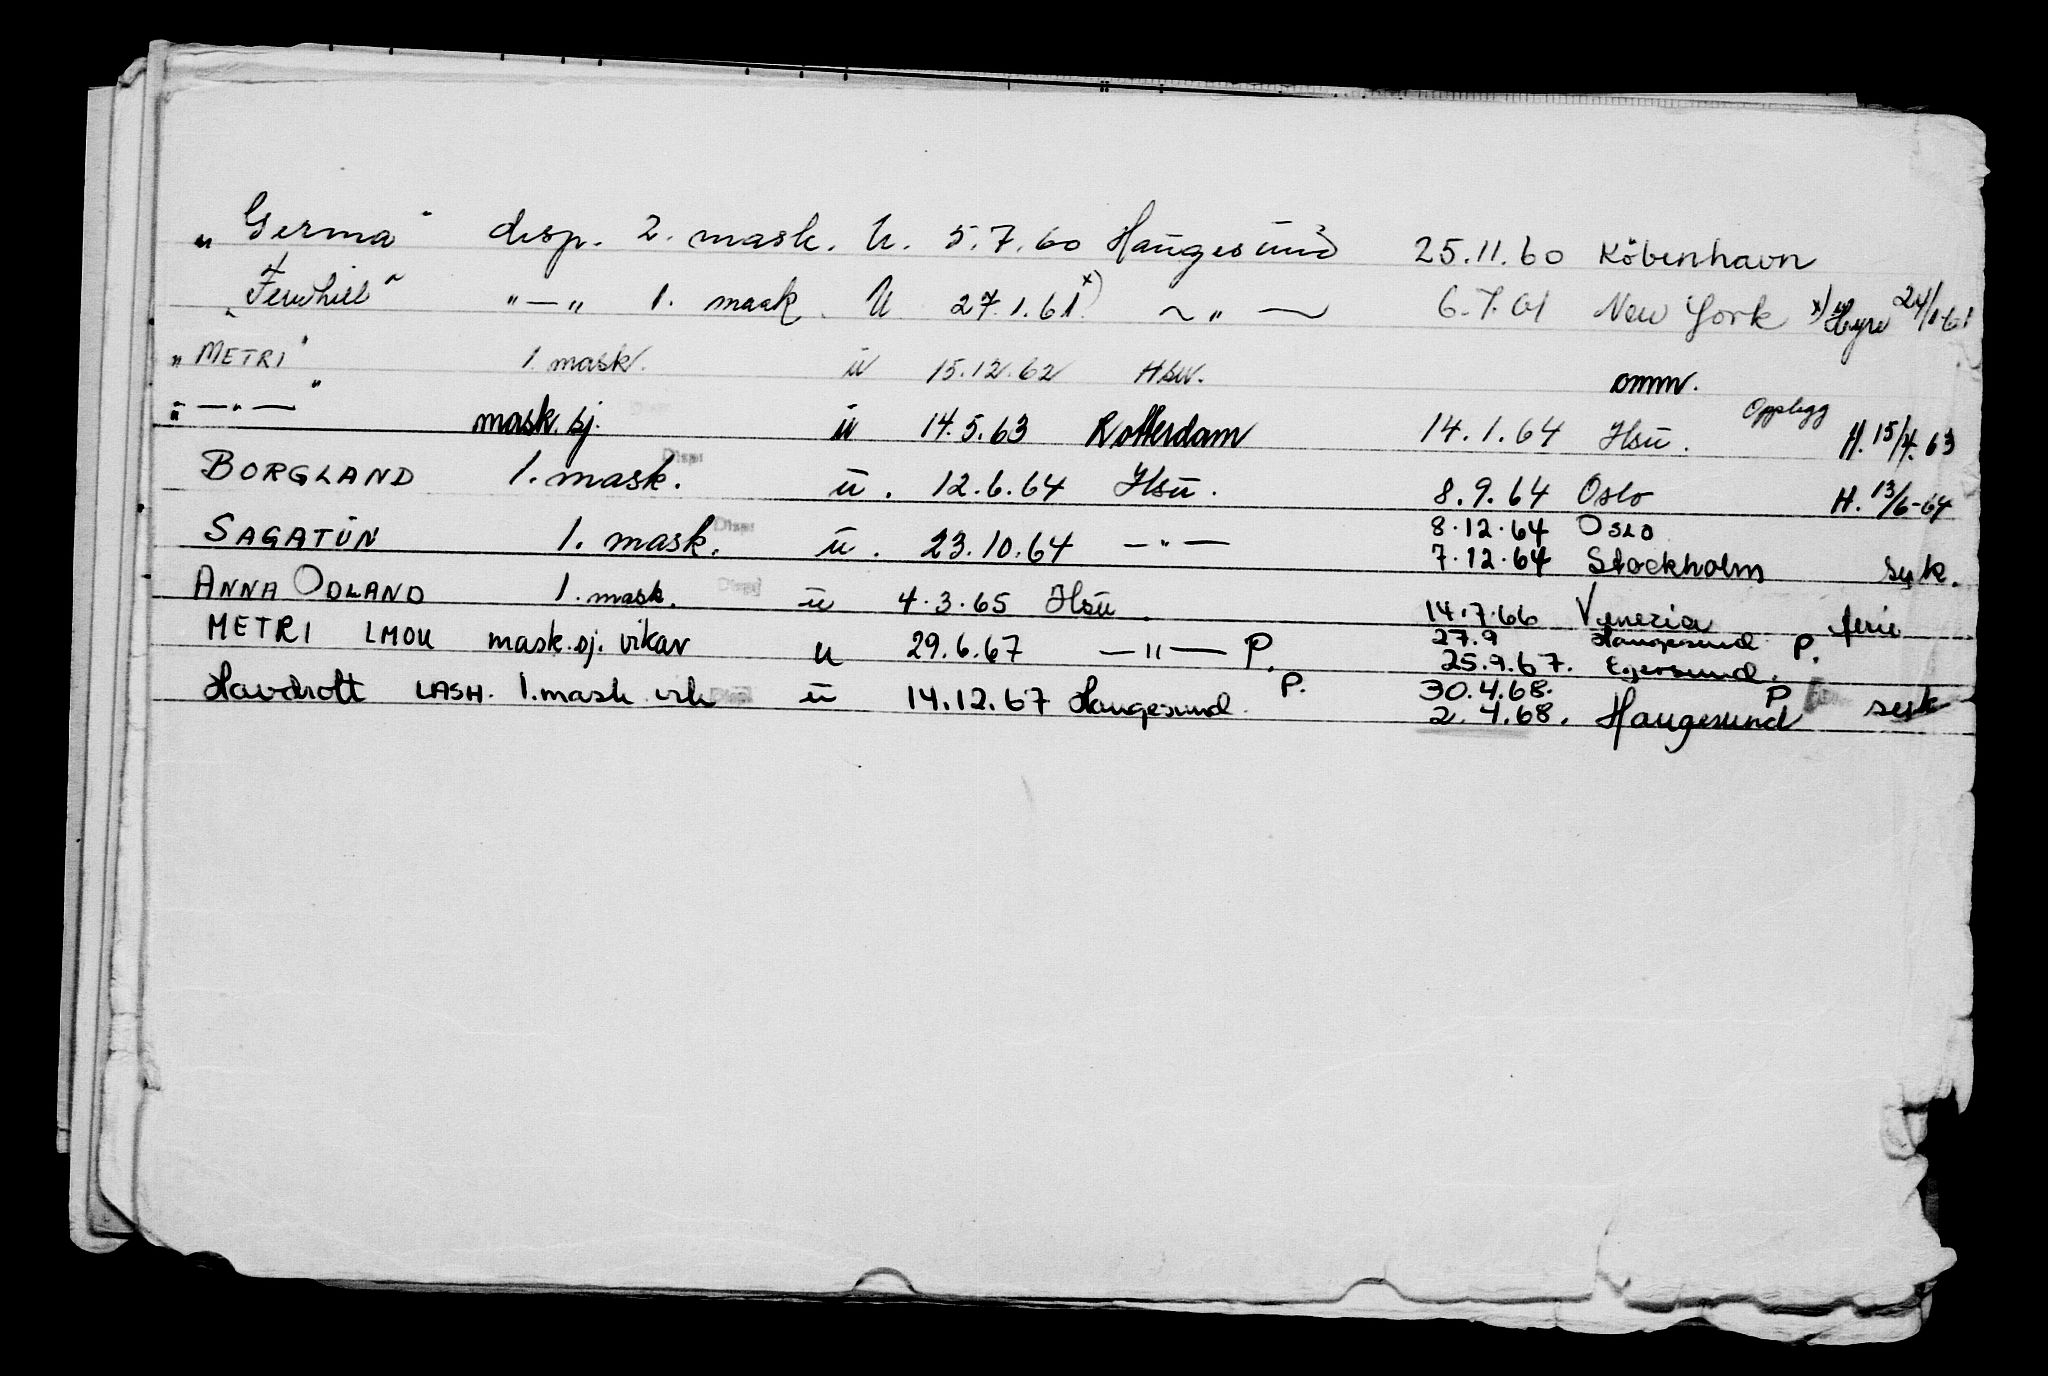 „Germa" disp. 2. mask. U. 5.7.60 Haugesund 25.11.60 Köbenhavn
„Fernhill" "—" 1. mask. U 27.1.61 x) ~ " — 6.7.61 New York x) Hyre 24/1-61
„METRI" 1 mask. u 15.12.62 Hsu. omm.
" — " — " mask. sj. u 14.5.63 Rotterdam 14.1.64 Hsu. Opplegg H. 15/4.63
BORGLAND 1. mask. Disp u. 12.6.64 Hsu. 8.9.64 Oslo H. 13/6-64
SAGATUN 1. mask. Disp u. 23.10.64 — " — 8.12.64 OSLO
7.12.64 Stockholm syk.
ANNA ODLAND 1. mask. Disp u 4.3.65 Hsu. 14.7.66 Venezia ferie
METRI LMOU mask. sj. vikar u 29.6.67 — " — P. 27.9 Haugesund P.
25.9.67. Egersund.
Havdrott LASH. 1. mask vik u 14.12.67 Haugesund P. 30.4.68. P
2.4.68. Haugesund syk